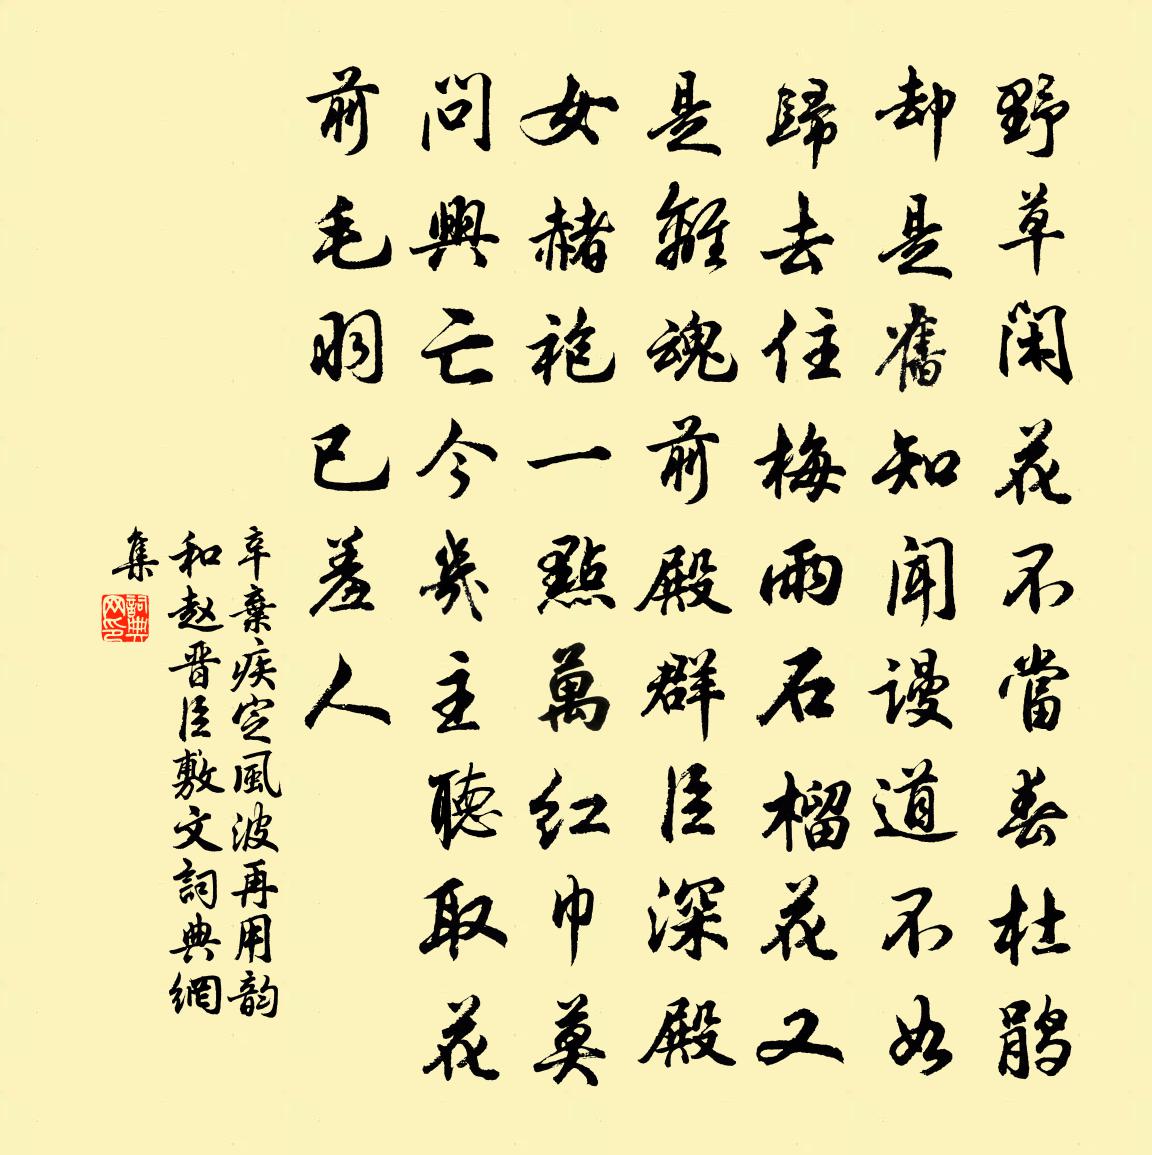 野草闲花不當春杜鹃
却是舊知聞谩道不如
歸去住梅雨石榴花又
是離魂前殿群臣深殿
女赭袍一點萬红巾莫
問興亡今幾主聽取花
前毛羽已羞人
辛棄疾定風波再用韵
和赵晋臣敷文詞典網
集
詞典网印